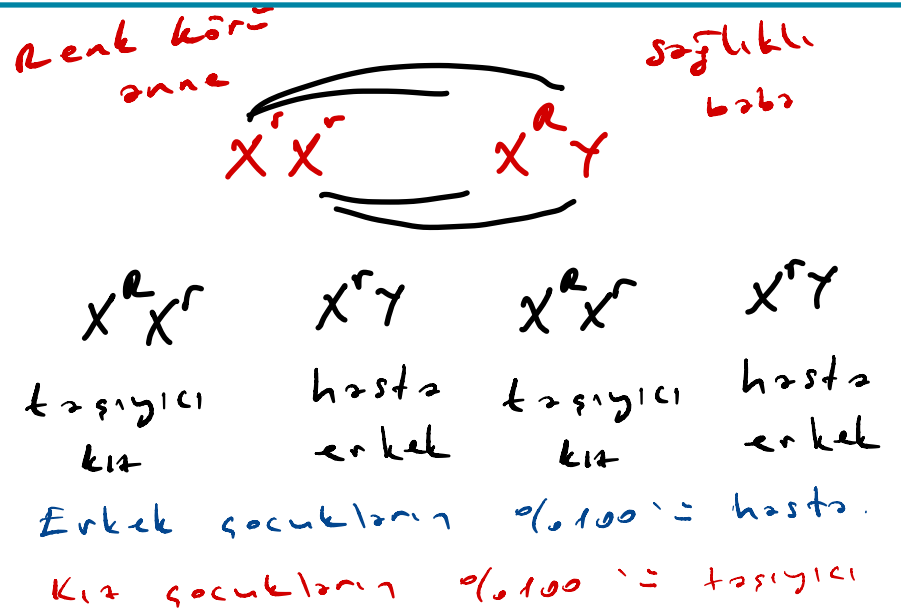 Renk körü
anne
sağlıklı
baba
XʳXʳ XᴿY
XᴿXʳ XʳY XᴿXʳ XʳY
taşıyıcı hasta taşıyıcı hasta
kız erkek kız erkek
Erkek çocukların %100'ü hasta.
Kız çocukların %100'ü taşıyıcı